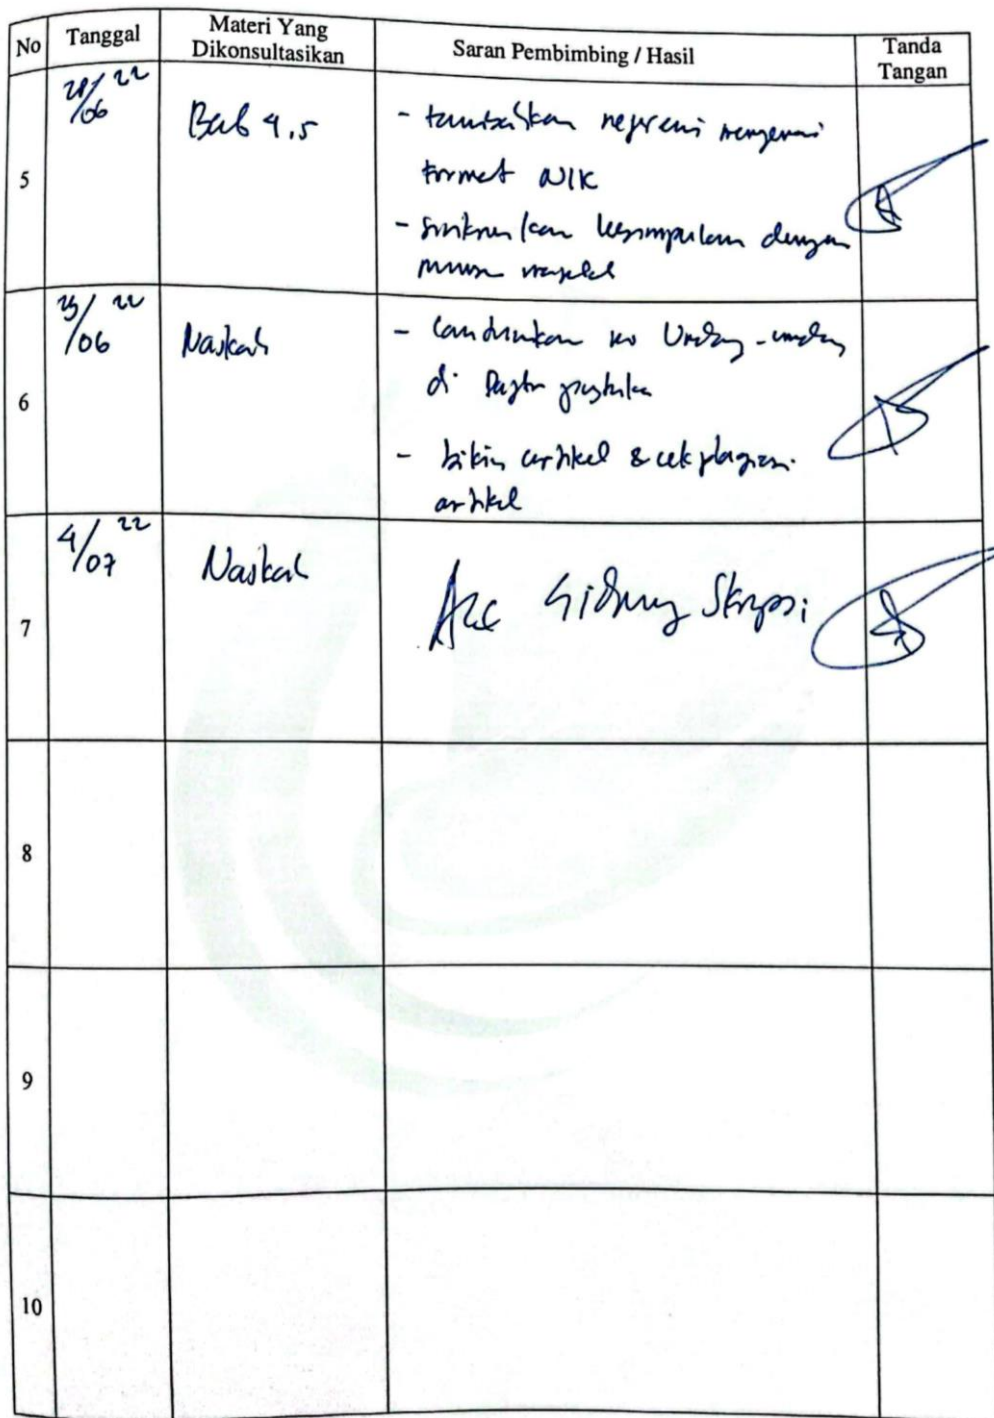 No Tanggal Materi Yang Dikonsultasikan Saran Pembimbing / Hasil Tanda Tangan
5 /06 22 Bab 4.5 - tambahkan mengenai
format NIK
- sinkronkan kesimpulan dengan
6 /06 22 Naskah - cantumkan Undang-undang
di Daftar pustaka
- bikin artikel & cek plagiasi
artikel
7 4/07 22 Naskah Acc Sidang Skripsi
8
9
10